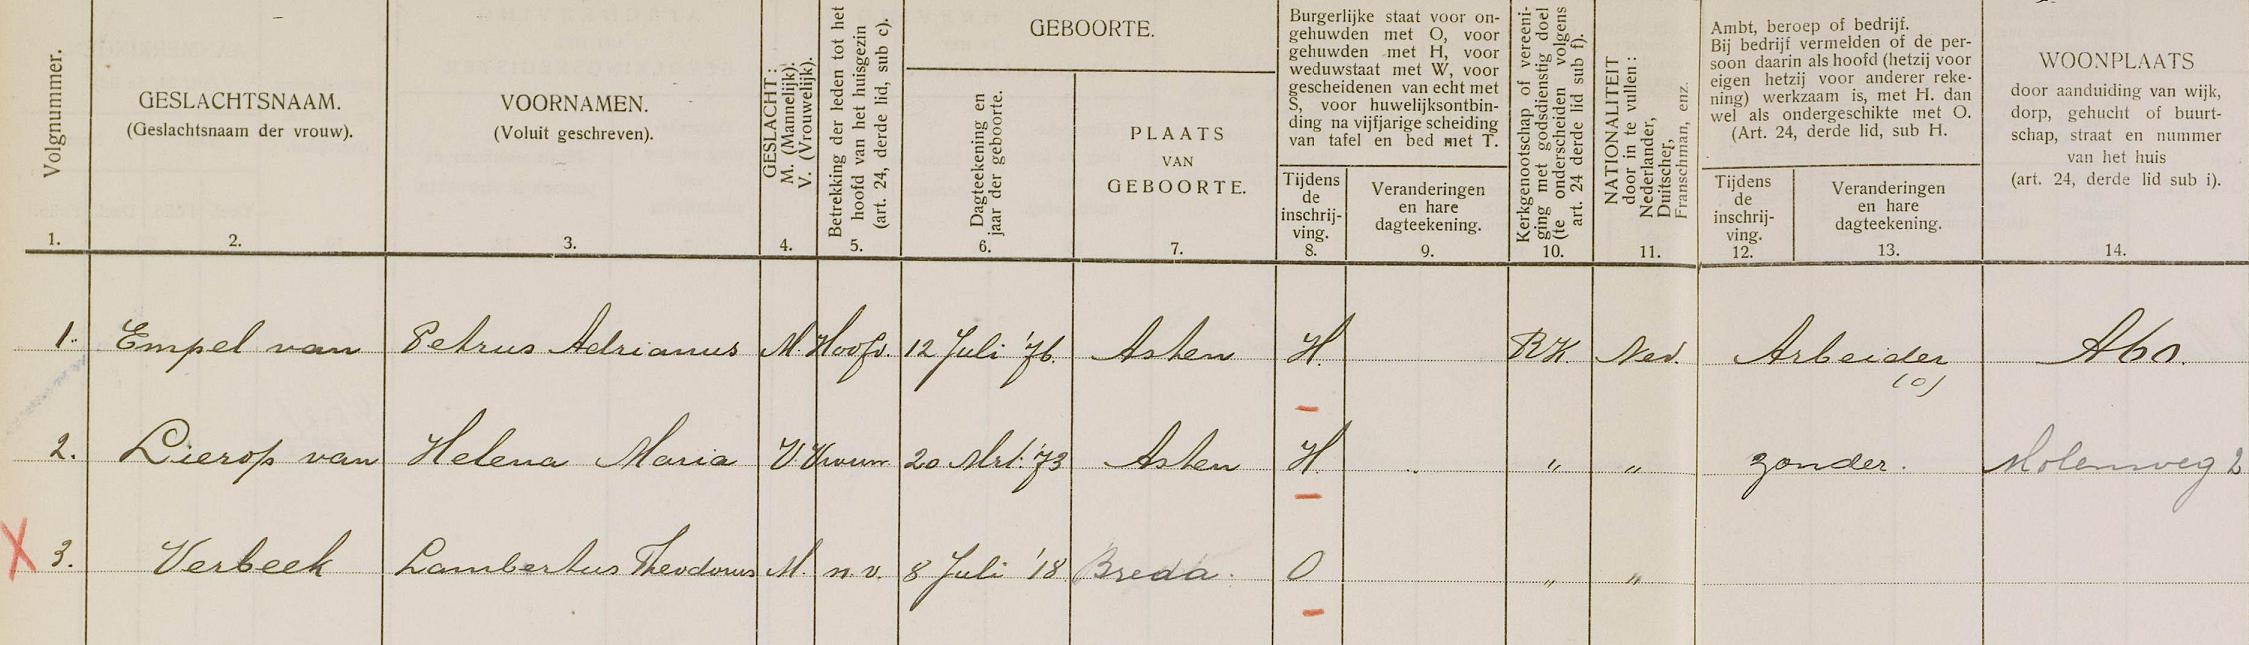 Volgnummer.
1.
GESLACHTSNAAM.
(Geslachtsnaam der vrouw).
2.
VOORNAMEN.
(Voluit geschreven).
3.
GESLACHT:
M. (Mannelijk).
V. (Vrouwelijk).
4.
Betrekking der leden tot het
hoofd van het huisgezin
(art. 24, derde lid, sub c).
5.
GEBOORTE.
Dagteekening en
jaar der geboorte.
6.
PLAATS
VAN
GEBOORTE.
7.
Burgerlijke staat voor on-
gehuwden met O, voor
gehuwden met H, voor
weduwstaat met W, voor
gescheidenen van echt met
S, voor huwelijksontbin-
ding na vijfjarige scheiding
van tafel en bed met T.
Tijdens
de
inschrij-
ving.
8.
Veranderingen
en hare
dagteekening.
9.
Kerkgenootschap of vereeni-
ging met godsdienstig doel
(te onderscheiden volgens
art. 24 derde lid sub f).
10.
NATIONALITEIT
door in te vullen:
Nederlander,
Duitscher,
Franschman, enz.
11.
Ambt, beroep of bedrijf.
Bij bedrijf vermelden of de per-
soon daarin als hoofd (hetzij voor
eigen hetzij voor anderer reke-
ning) werkzaam is, met H. dan
wel als ondergeschikte met O.
(Art. 24, derde lid, sub H.
Tijdens
de
inschrij-
ving.
12.
Veranderingen
en hare
dagteekening.
13.
WOONPLAATS
door aanduiding van wijk,
dorp, gehucht of buurt-
schap, straat en nummer
van het huis
(art. 24, derde lid sub i).
14.
1. Empel van Petrus Adrianus M. Hoofd. 12 Juli '76. Asten H. RK Ned. Arbeider
(o)
2. Lierop van Helena Maria V Vrouw 20 Mrt. '73 Asten H. " " zonder. Molenweg 2
X 3. Verbeek Lambertus Theodorus M. n.v. 8 Juli '18 Breda. O " "